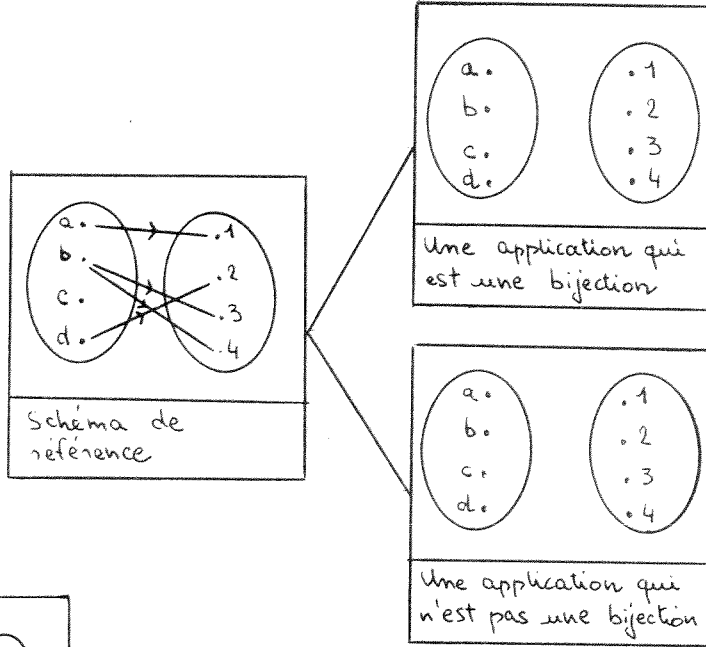 a.
b.
c.
d.
.1
.2
.3
.4
Schéma de
référence
a.
b.
c.
d.
.1
.2
.3
.4
Une application qui
est une bijection
a.
b.
c.
d.
.1
.2
.3
.4
Une application qui
n'est pas une bijection